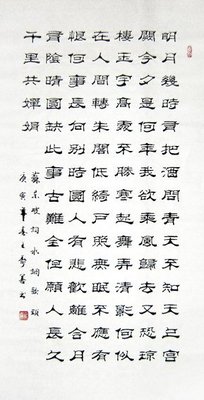 明月幾時有把酒問青天不知天上宮
闕今夕是何年我欲乘風歸去又恐瓊
樓玉宇高處不勝寒起舞弄清影何似
在人間轉朱閣低綺戶照無眠不應有
恨何事長向別時圓人有悲歡離合月
有陰晴圓缺此事古難全但願人長久
千里共嬋娟
蘇東坡詞水調歌頭
庚寅年